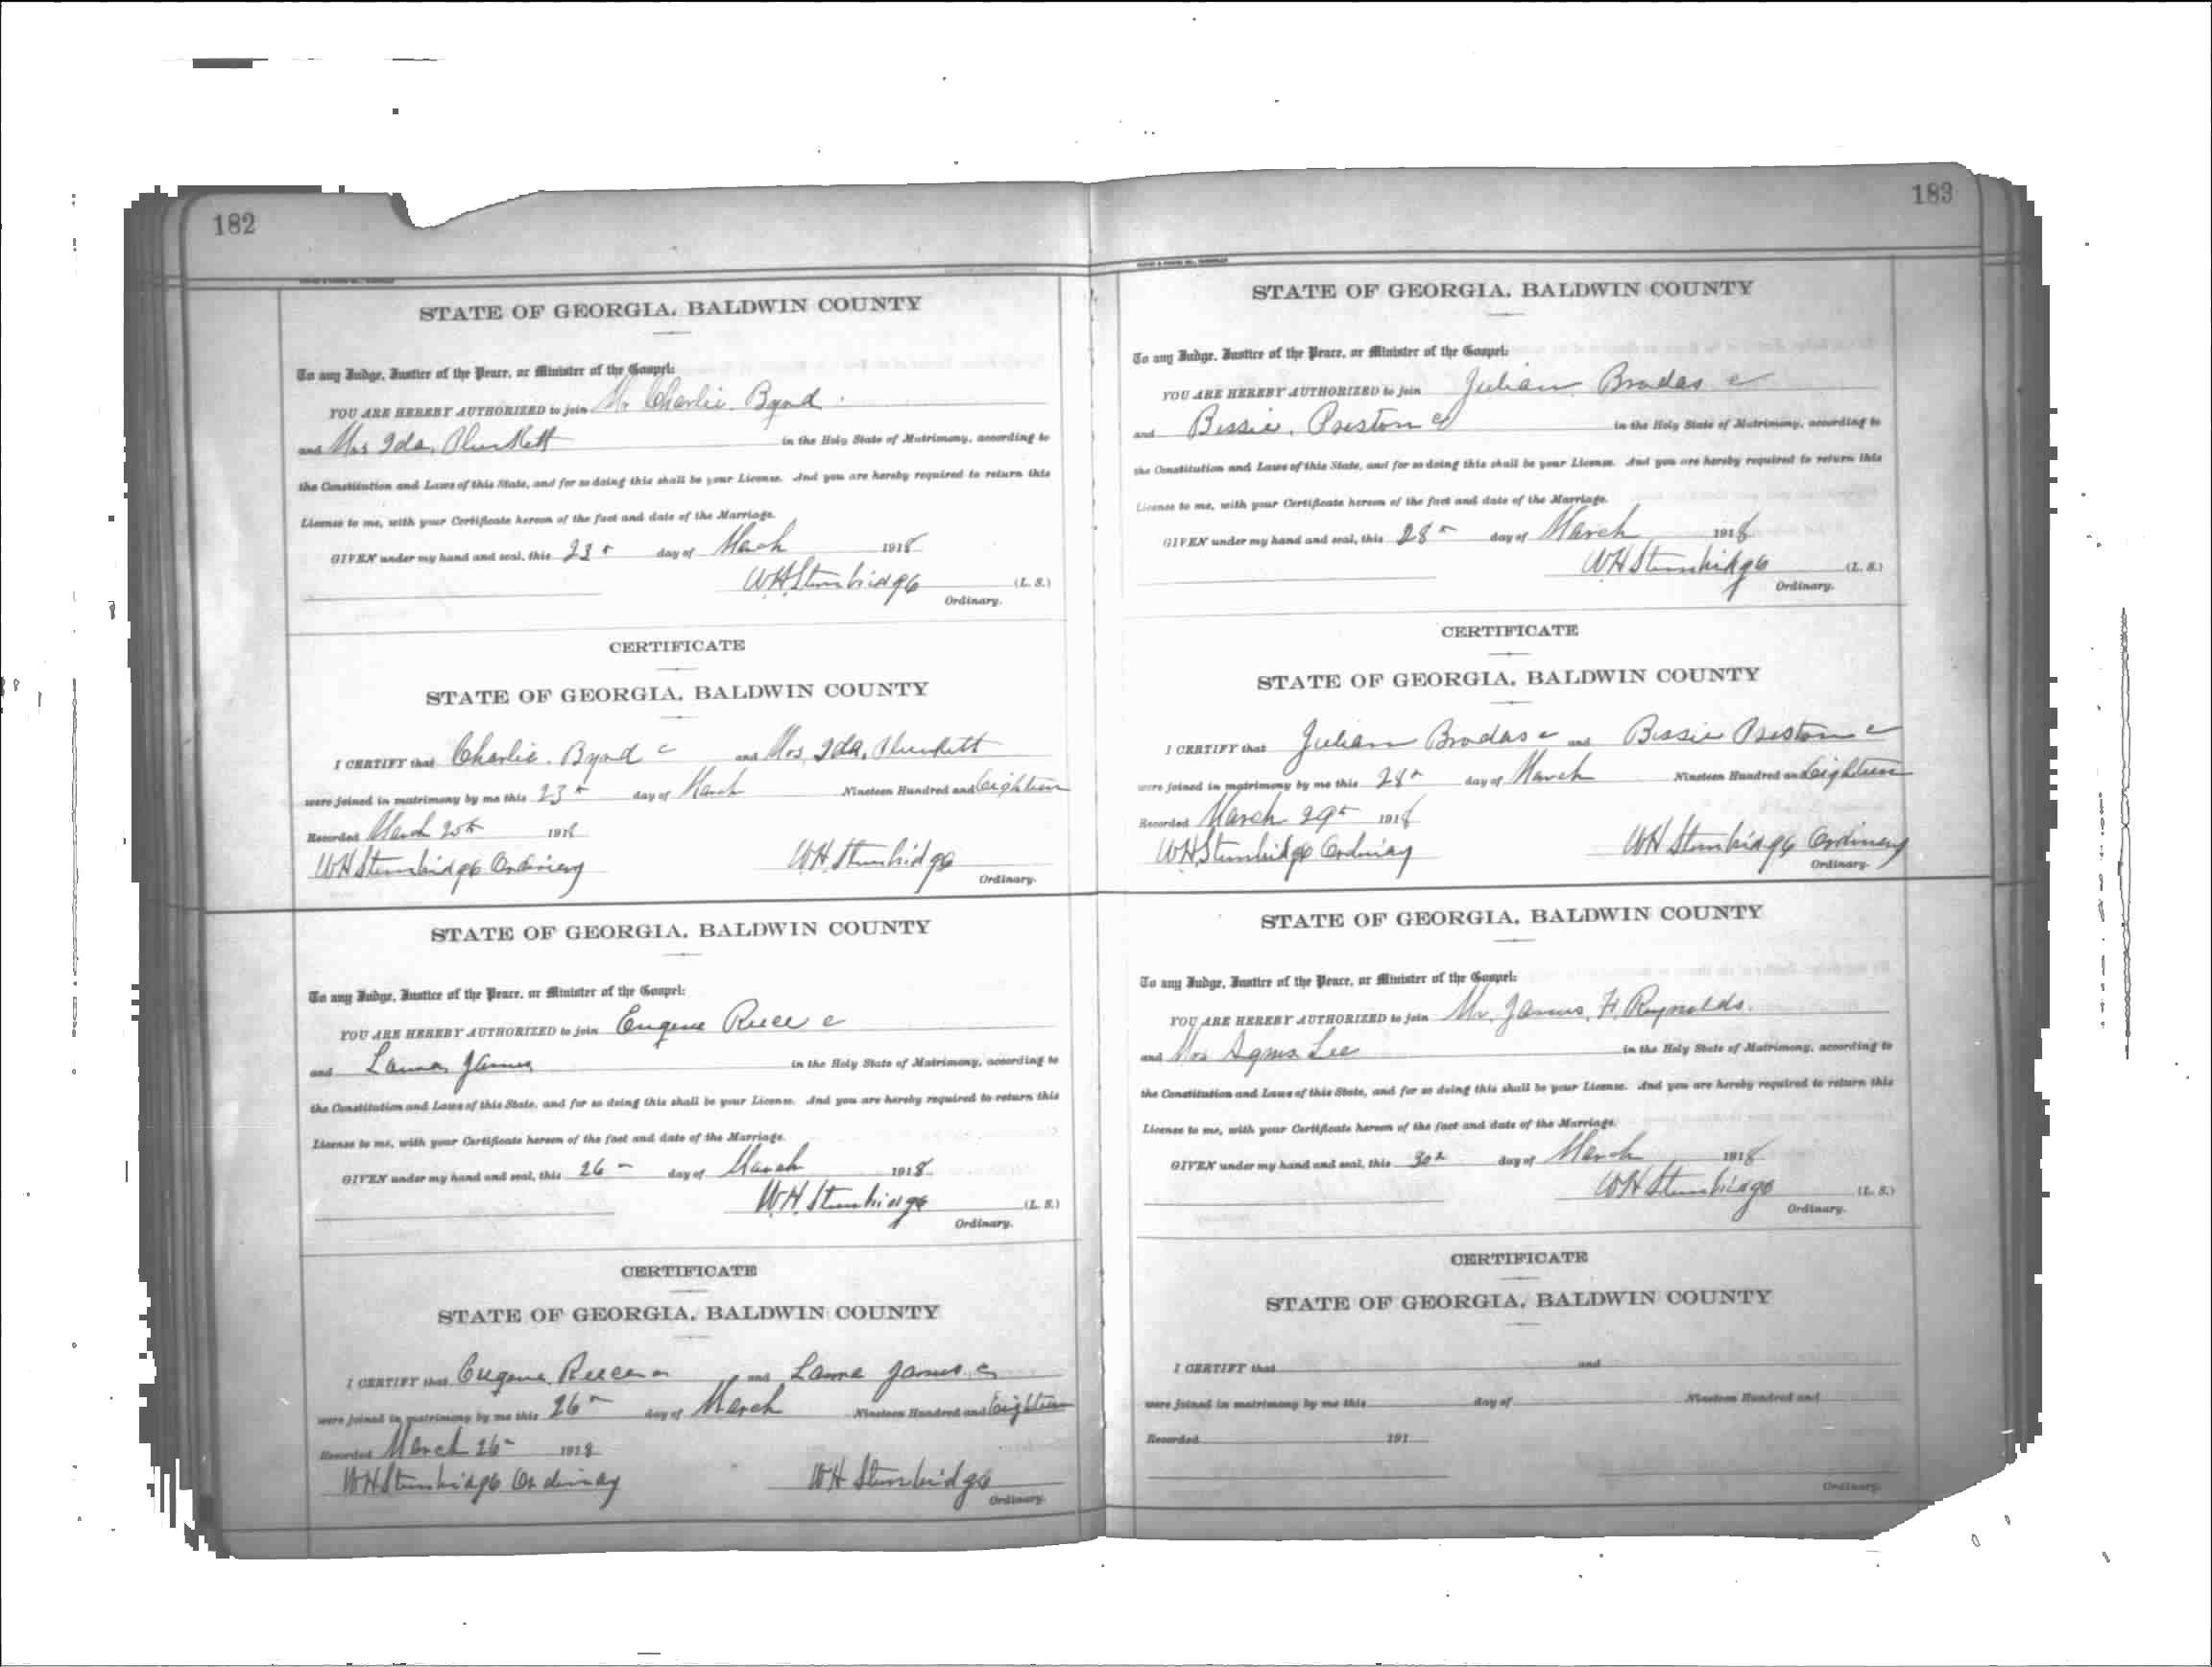 182
STATE OF GEORGIA, BALDWIN COUNTY
To any Judge, Justice of the Peace, or Minister of the Gospel:
YOU ARE HEREBY AUTHORIZED to join Mr Charlie Bynd
and Mrs Ida Plunkett in the Holy State of Matrimony, according to
the Constitution and Laws of this State, and for so doing this shall be your License. And you are hereby required to return this
License to me, with your Certificate hereon of the fact and date of the Marriage.
GIVEN under my hand and seal, this 23 day of March 1918
WH Stembridge (L. S.)
Ordinary.
CERTIFICATE
STATE OF GEORGIA, BALDWIN COUNTY
I CERTIFY that Charlie Bynd c and Mrs Ida Plunkett
were joined in matrimony by me this 23 day of March Nineteen Hundred and Eighteen
Recorded March 25th 1918
WH Stembridge Ordinary WH Stembridge
Ordinary.
STATE OF GEORGIA, BALDWIN COUNTY
To any Judge, Justice of the Peace, or Minister of the Gospel:
YOU ARE HEREBY AUTHORIZED to join Eugene Reece c
and James in the Holy State of Matrimony, according to
the Constitution and Laws of this State, and for so doing this shall be your License. And you are hereby required to return this
License to me, with your Certificate hereon of the fact and date of the Marriage.
GIVEN under my hand and seal, this 26 day of March 1918
W.H. Stembridge (L. S.)
Ordinary.
CERTIFICATE
STATE OF GEORGIA, BALDWIN COUNTY
I CERTIFY that Eugene Reece and James c
were joined in matrimony by me this 26 day of March Nineteen Hundred and Eighteen
Recorded March 26 1918
WH Stembridge Ordinary WH Stembridge
Ordinary.
183
STATE OF GEORGIA, BALDWIN COUNTY
To any Judge, Justice of the Peace, or Minister of the Gospel:
YOU ARE HEREBY AUTHORIZED to join Julian Brodas c
and Bessie Preston c in the Holy State of Matrimony, according to
the Constitution and Laws of this State, and for so doing this shall be your License. And you are hereby required to return this
License to me, with your Certificate hereon of the fact and date of the Marriage.
GIVEN under my hand and seal, this 28 day of March 1918
WH Stembridge (L. S.)
Ordinary.
CERTIFICATE
STATE OF GEORGIA, BALDWIN COUNTY
I CERTIFY that Julian Brodas c and Bessie Preston c
were joined in matrimony by me this 28 day of March Nineteen Hundred and Eighteen
Recorded March 29 1918
WH Stembridge Ordinary WH Stembridge Ordinary
Ordinary.
STATE OF GEORGIA, BALDWIN COUNTY
To any Judge, Justice of the Peace, or Minister of the Gospel:
YOU ARE HEREBY AUTHORIZED to join Mr. James H. Reynolds.
and Mrs Agnes Lee in the Holy State of Matrimony, according to
the Constitution and Laws of this State, and for so doing this shall be your License. And you are hereby required to return this
License to me, with your Certificate hereon of the fact and date of the Marriage.
GIVEN under my hand and seal, this 30 day of March 1918
WH Stembridge (L. S.)
Ordinary.
CERTIFICATE
STATE OF GEORGIA, BALDWIN COUNTY
I CERTIFY that and
were joined in matrimony by me this day of Nineteen Hundred and
Recorded 191
Ordinary.